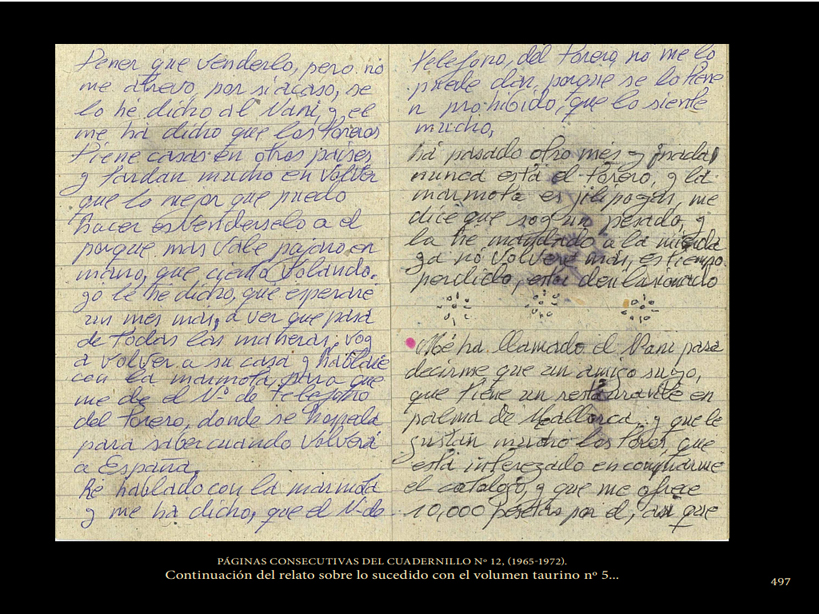 Tener que venderlo, pero no
me atrevo, por si acaso, se
lo hé dicho al Nani, y el
me ha dicho que los toreros
tiene casas en otros paises
y tardan mucho en volver
que lo mejor que puedo
hacer es venderselo a el
porque mas vale pajaro en
mano, que ciento volando.
yo le he dicho, que esperaré
un mes mas, a ver que pasa
de todas las maneras, voy
a volver a su casa y hablaré
con la marmota, para que
me de el Nº de telefono
del torero, donde se hospeda
para saber cuando volverá
a España,
Hé hablado con la marmota
y me ha dicho, que el Nº de
telefono, del torero, no me lo
puede dar, porque se lo tiene
n prohibido, que lo siente
mucho,
ha pasado otro mes y nada
nunca está el torero, y la
marmota es jilipoyas, me
dice que soy un pesado, y
la he mandado a la mierda
ya no volveré mas, es tiempo
perdido, estoi desilusionado
Mé ha llamado el Nani para
decirme que un amigo suyo,
que tiene un restaurante en
palma de Mallorca, y que le
gustan mucho los toros, que
está interezado en comprarme
el catalogo, y que me ofrece
10,000 pesetas por el, asi que
PÁGINAS CONSECUTIVAS DEL CUADERNILLO Nº 12, (1965-1972).
Continuación del relato sobre lo sucedido con el volumen taurino nº 5...
497